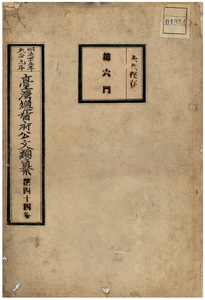 明治四十五年
大正元年
臺灣總督府公文類纂
第四十四卷
永久保存
第六門